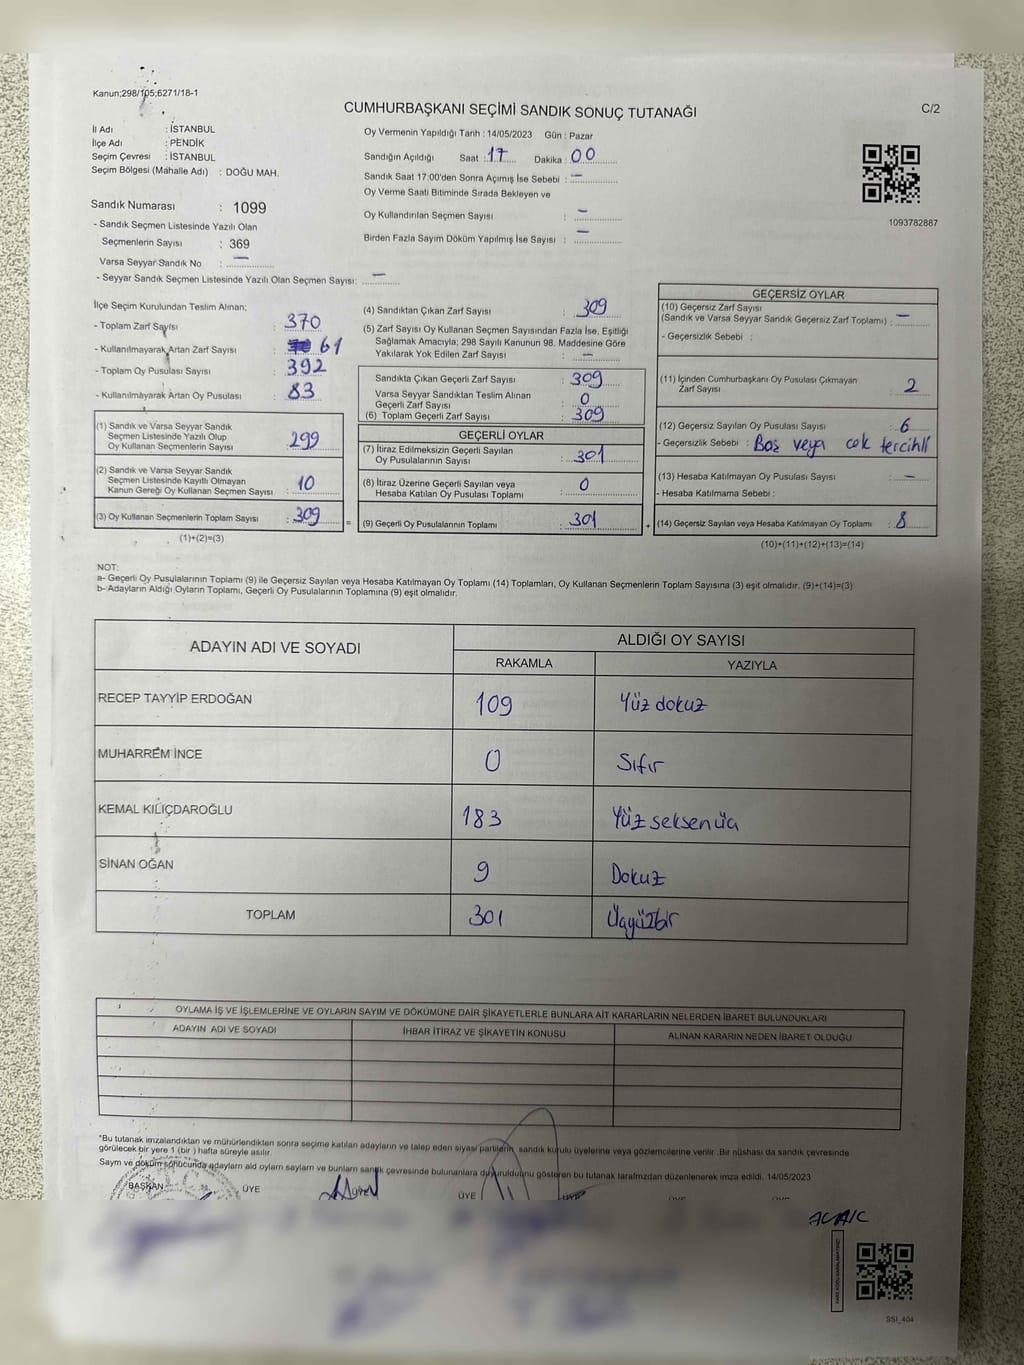 Kanun;298/105;6271/18-1
CUMHURBAŞKANI SEÇİMİ SANDIK SONUÇ TUTANAĞI
C/2
İl Adı : İSTANBUL
İlçe Adı : PENDİK
Seçim Çevresi : İSTANBUL
Seçim Bölgesi (Mahalle Adı) : DOĞU MAH.
Sandık Numarası : 1099
- Sandık Seçmen Listesinde Yazılı Olan
Seçmenlerin Sayısı : 369
Varsa Seyyar Sandık No : —
- Seyyar Sandık Seçmen Listesinde Yazılı Olan Seçmen Sayısı: —
Oy Vermenin Yapıldığı Tarih : 14/05/2023 Gün : Pazar
Sandığın Açıldığı Saat : 17 Dakika : 00
Sandık Saat 17:00'den Sonra Açımış İse Sebebi : —
Oy Verme Saati Bitiminde Sırada Bekleyen ve
Oy Kullandırılan Seçmen Sayısı : —
Birden Fazla Sayım Döküm Yapılmış İse Sayısı : —
1093782887
İlçe Seçim Kurulundan Teslim Alınan;
- Toplam Zarf Sayısı : 370
- Kullanılmayarak Artan Zarf Sayısı : 61
- Toplam Oy Pusulası Sayısı : 392
- Kullanılmayarak Artan Oy Pusulası : 83
(1) Sandık ve Varsa Seyyar Sandık
Seçmen Listesinde Yazılı Olup
Oy Kullanan Seçmenlerin Sayısı : 299
(2) Sandık ve Varsa Seyyar Sandık
Seçmen Listesinde Kayıtlı Olmayan
Kanun Gereği Oy Kullanan Seçmen Sayısı : 10
(3) Oy Kullanan Seçmenlerin Toplam Sayısı : 309 =
(1)+(2)=(3)
(4) Sandıktan Çıkan Zarf Sayısı : 309
(5) Zarf Sayısı Oy Kullanan Seçmen Sayısından Fazla İse, Eşitliği
Sağlamak Amacıyla; 298 Sayılı Kanunun 98. Maddesine Göre
Yakılarak Yok Edilen Zarf Sayısı : —
Sandıkta Çıkan Geçerli Zarf Sayısı : 309
Varsa Seyyar Sandıktan Teslim Alınan
Geçerli Zarf Sayısı : 0
(6) Toplam Geçerli Zarf Sayısı : 309
GEÇERLİ OYLAR
(7) İtiraz Edilmeksizin Geçerli Sayılan
Oy Pusulalarının Sayısı : 301
(8) İtiraz Üzerine Geçerli Sayılan veya
Hesaba Katılan Oy Pusulası Toplamı : 0
(9) Geçerli Oy Pusulalarının Toplamı : 301 +
GEÇERSİZ OYLAR
(10) Geçersiz Zarf Sayısı
(Sandık ve Varsa Seyyar Sandık Geçersiz Zarf Toplamı) : —
- Geçersizlik Sebebi :
(11) İçinden Cumhurbaşkanı Oy Pusulası Çıkmayan
Zarf Sayısı : 2
(12) Geçersiz Sayılan Oy Pusulası Sayısı : 6
- Geçersizlik Sebebi : Boş veya çok tercihli
(13) Hesaba Katılmayan Oy Pusulası Sayısı : —
- Hesaba Katılmama Sebebi :
(14) Geçersiz Sayılan veya Hesaba Katılmayan Oy Toplamı : 8
(10)+(11)+(12)+(13)=(14)
NOT:
a- Geçerli Oy Pusulalarının Toplamı (9) ile Geçersiz Sayılan veya Hesaba Katılmayan Oy Toplamı (14) Toplamları, Oy Kullanan Seçmenlerin Toplam Sayısına (3) eşit olmalıdır. (9)+(14)=(3)
b- Adayların Aldığı Oyların Toplamı, Geçerli Oy Pusulalarının Toplamına (9) eşit olmalıdır.
ADAYIN ADI VE SOYADI ALDIĞI OY SAYISI
RAKAMLA YAZIYLA
RECEP TAYYİP ERDOĞAN 109 Yüz dokuz
MUHARREM İNCE 0 Sıfır
KEMAL KILIÇDAROĞLU 183 Yüz seksenüç
SİNAN OĞAN 9 Dokuz
TOPLAM 301 Üçyüzbir
OYLAMA İŞ VE İŞLEMLERİNE VE OYLARIN SAYIM VE DÖKÜMÜNE DAİR ŞİKAYETLERLE BUNLARA AİT KARARLARIN NELERDEN İBARET BULUNDUKLARI
ADAYIN ADI VE SOYADI İHBAR İTİRAZ VE ŞİKAYETİN KONUSU ALINAN KARARIN NEDEN İBARET OLDUĞU
*Bu tutanak imzalandıktan ve mühürlendikten sonra seçime katılan adayların ve talep eden siyasi partilerin, sandık kurulu üyelerine veya gözlemcilerine verilir .Bir nüshası da sandık çevresinde
görülecek bir yere 1 (bir ) hafta süreyle asılır.
Sayım ve döküm sonucunda adayların ald oyların sayların ve bunların sandık çevresinde bulunanlara duyurulduğunu gösteren bu tutanak tarafımızdan düzenlenerek imza edildi. 14/05/2023
BAŞKAN ÜYE ÜYE
SSI_404